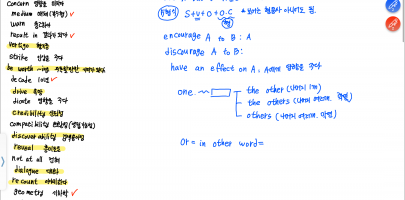 concern 영향을 미치다
medium 매체 (복수형)
warn 경고하다
result in 결과가 되다
vertigo 현기증
strike 인상을 주다
be worth ~ing
decade 10년
drive 욕망
dictate 영향을 주다
credibility 신뢰성
compatibility
discoverability
reveal 드러내다
not at all 전혀
dialogue 대화
recount 이야기하다
geometry 기하학
5형식 S+V+O+O.C
encourage A to B : A
discourage A to B :
have an effect on A, A에게 영향을 주다
one
the other (나머지 1개)
the others (나머지 여러개, 특정)
others (나머지 여러개, 미정)
or = in other word =